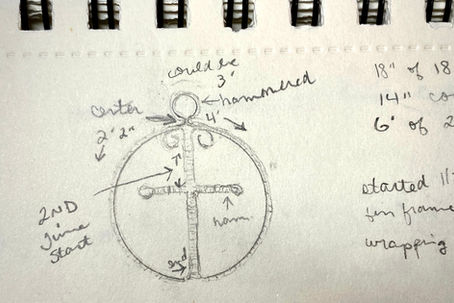 could be
3"
hammered
center
4"
2" 2"
2ND
Time
Start
ham.
end
18" of 18
14" co
6" of 2
started 11/
for frame
wrapping